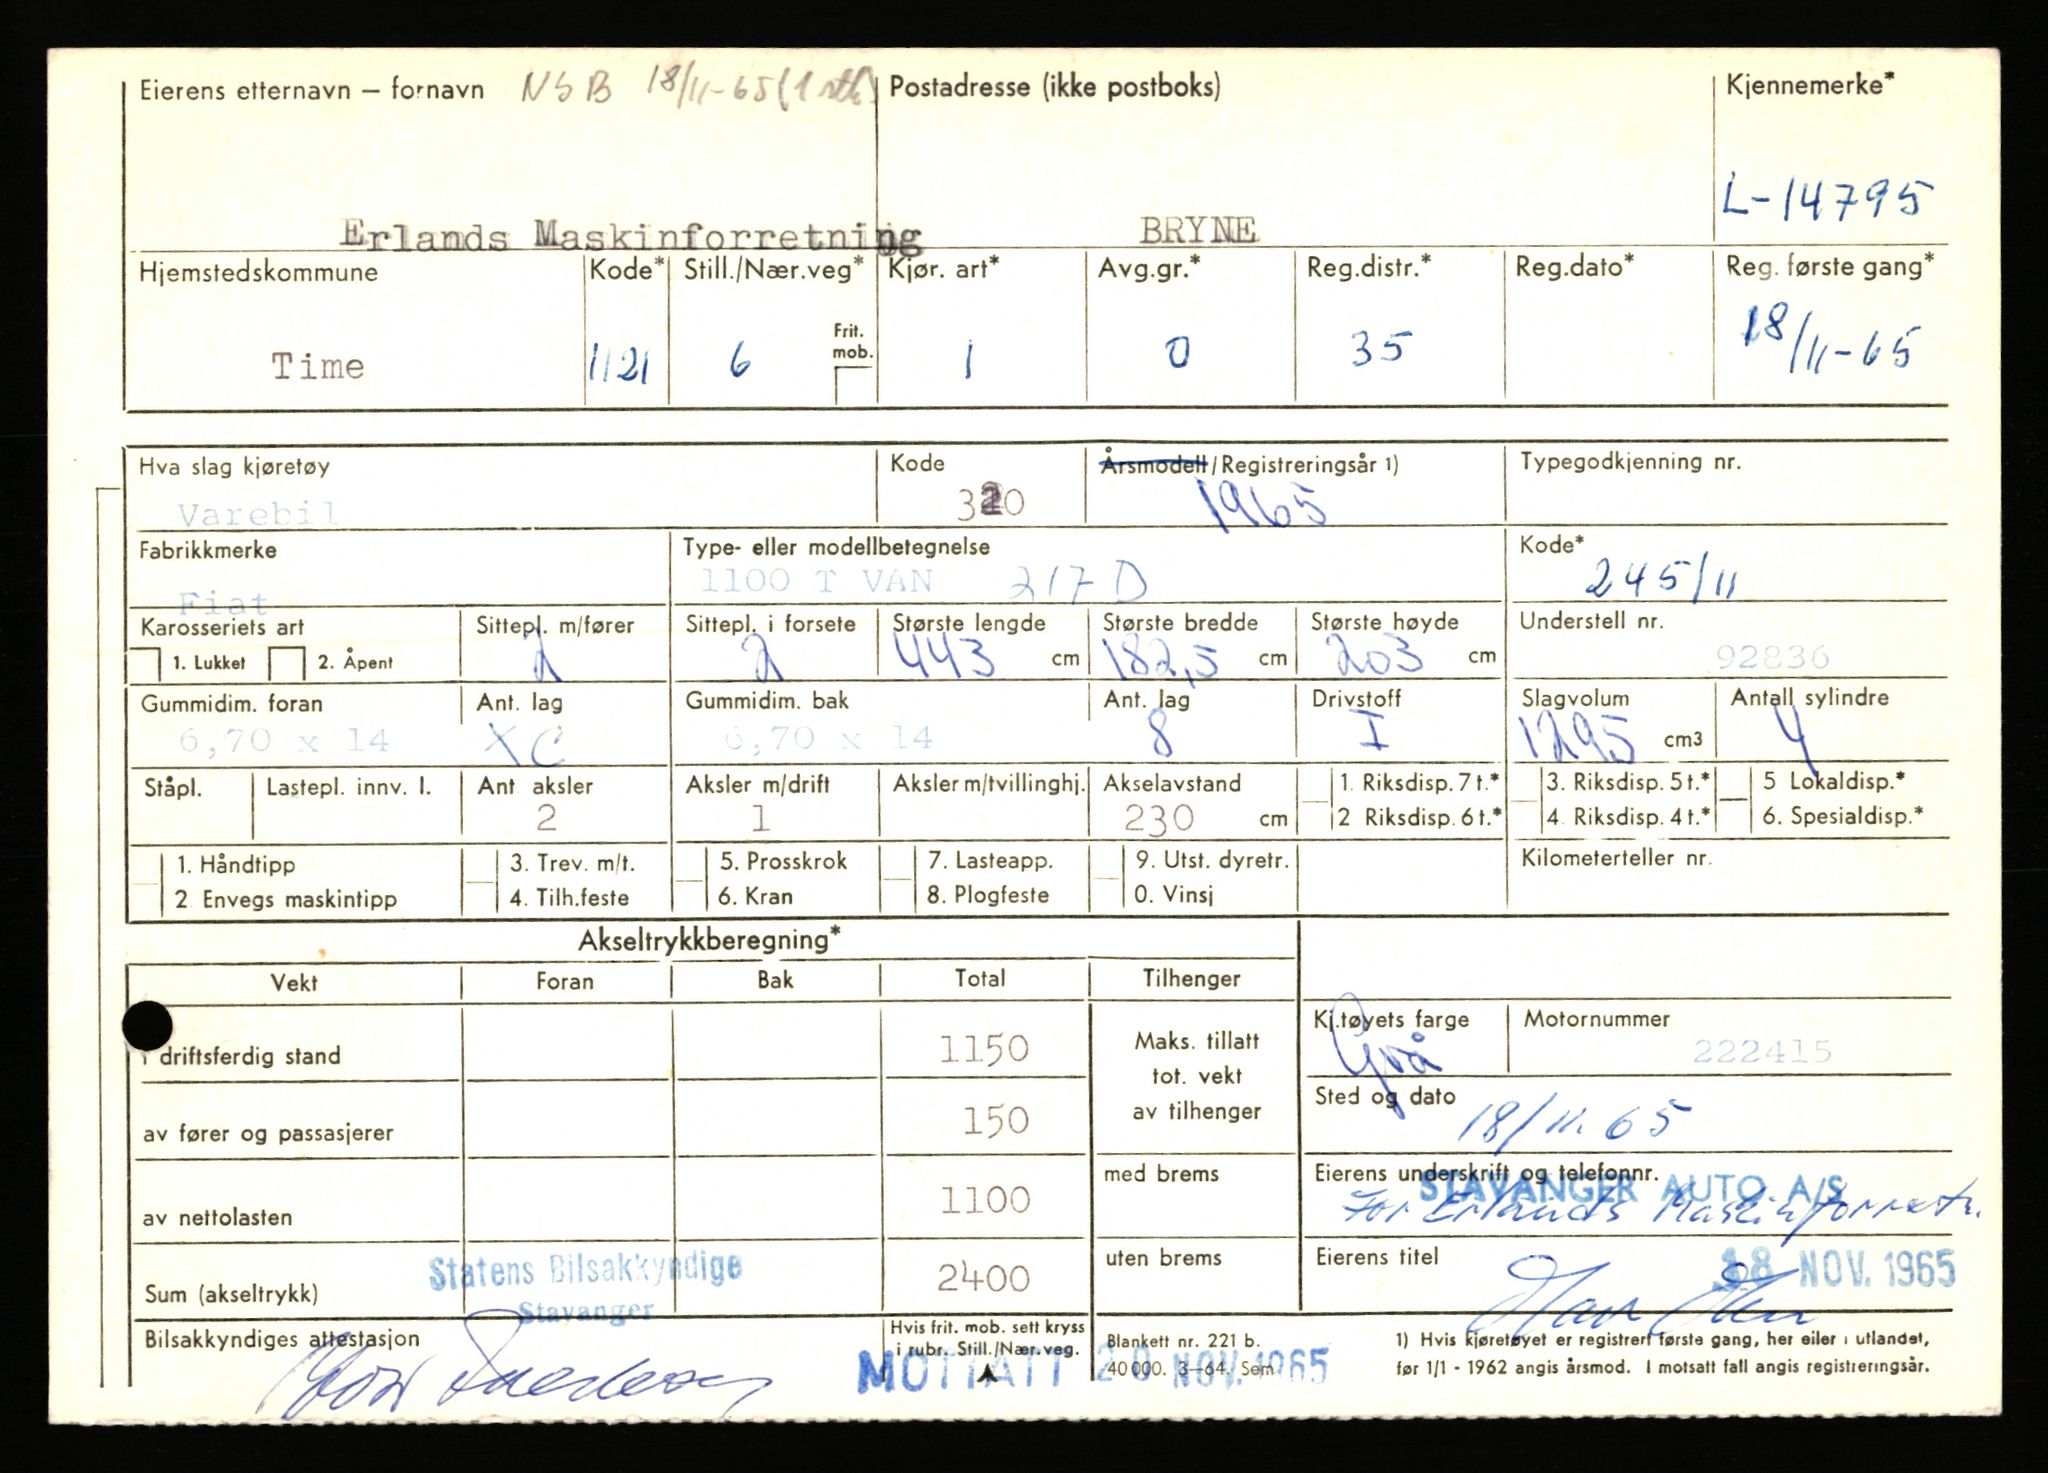 Eierens etternavn – fornavn NSB 18/11-65 (1 stk) Postadresse (ikke postboks) Kjennemerke*
L-14795
Erlands Maskinforretning BRYNE
Hjemstedskommune Kode* Still./Nær.veg* Kjør. art* Avg.gr.* Reg.distr.* Reg.dato* Reg. første gang*
Frit.
mob.
Time 1121 6 1 0 35 18/11-65
Hva slag kjøretøy Kode Årsmodell/Registreringsår 1) Typegodkjenning nr.
Varebil 320 1965
Fabrikkmerke Type- eller modellbetegnelse Kode*
Fiat 1100 T VAN 217 D 245/11
Karosseriets art Sittepl. m/fører Sittepl. i forsete Største lengde Største bredde Største høyde Understell nr.
1. Lukket 2. Åpent 2 2 443 cm 182,5 cm 203 cm 92836
Gummidim. foran Ant. lag Gummidim. bak Ant. lag Drivstoff Slagvolum Antall sylindre
6,70 x 14 XC 6,70 x 14 8 I 1295 cm3 4
Ståpl. Lastepl. innv. l. Ant aksler Aksler m/drift Aksler m/tvillinghj. Akselavstand 1. Riksdisp. 7 t.* 3. Riksdisp. 5 t.* 5 Lokaldisp.*
2 1 230 cm 2 Riksdisp. 6 t.* 4. Riksdisp. 4 t.* 6. Spesialdisp.*
1. Håndtipp 3. Trev. m/t. 5. Prosskrok 7. Lasteapp. 9. Utst. dyretr. Kilometerteller nr.
2 Envegs maskintipp 4. Tilh.feste 6. Kran 8. Plogfeste 0. Vinsj
Akseltrykkberegning*
Vekt Foran Bak Total Tilhenger
i driftsferdig stand 1150 Maks. tillatt
tot. vekt
av tilhenger
Kj.tøyets farge Motornummer
Grå 222415
av fører og passasjerer 150
Sted og dato
18/11.65
av nettolasten 1100 med brems
Eierens underskrift og telefonnr.
STAVANGER AUTO A/S
For Erlands Maskinforretn.
Sum (akseltrykk) 2400 uten brems
Statens Bilsakkyndige
Stavanger
Eierens titel 18 NOV. 1965
Bilsakkyndiges attestasjon
Hvis frit. mob. sett kryss
i rubr. Still./Nær.veg.
MOTTATT 20 NOV. 1965
Blankett nr. 221 b.
40 000. 3–64. Sem
1) Hvis kjøretøyet er registrert første gang, her eller i utlandet,
før 1/1 - 1962 angis årsmod. I motsatt fall angis registreringsår.